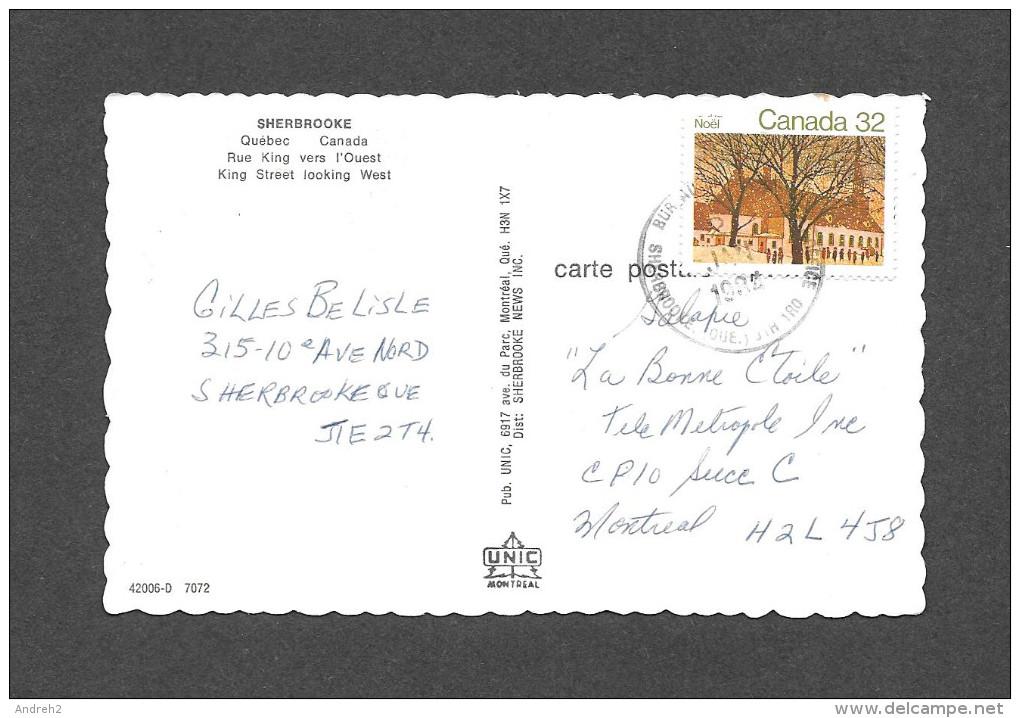 SHERBROOKE
Québec Canada
Rue King vers l'Ouest
King Street looking West
GILLES BELISLE
315-10e AVE NORD
SHERBROOKE QUE
J1E 2T4.
42006-D 7072
Pub. UNIC, 6917 ave. du Parc, Montréal, Qué. H3N 1X7
Dist: SHERBROOKE NEWS INC.
UNIC
MONTREAL
Noël
Canada 32
carte
JAN
(QUE.) J1H 1R0
"La Bonne Etoile"
Tele Metropole Inc
CP10 Succ C
Montreal H2L 4J8
Andreh2
delcampe.net